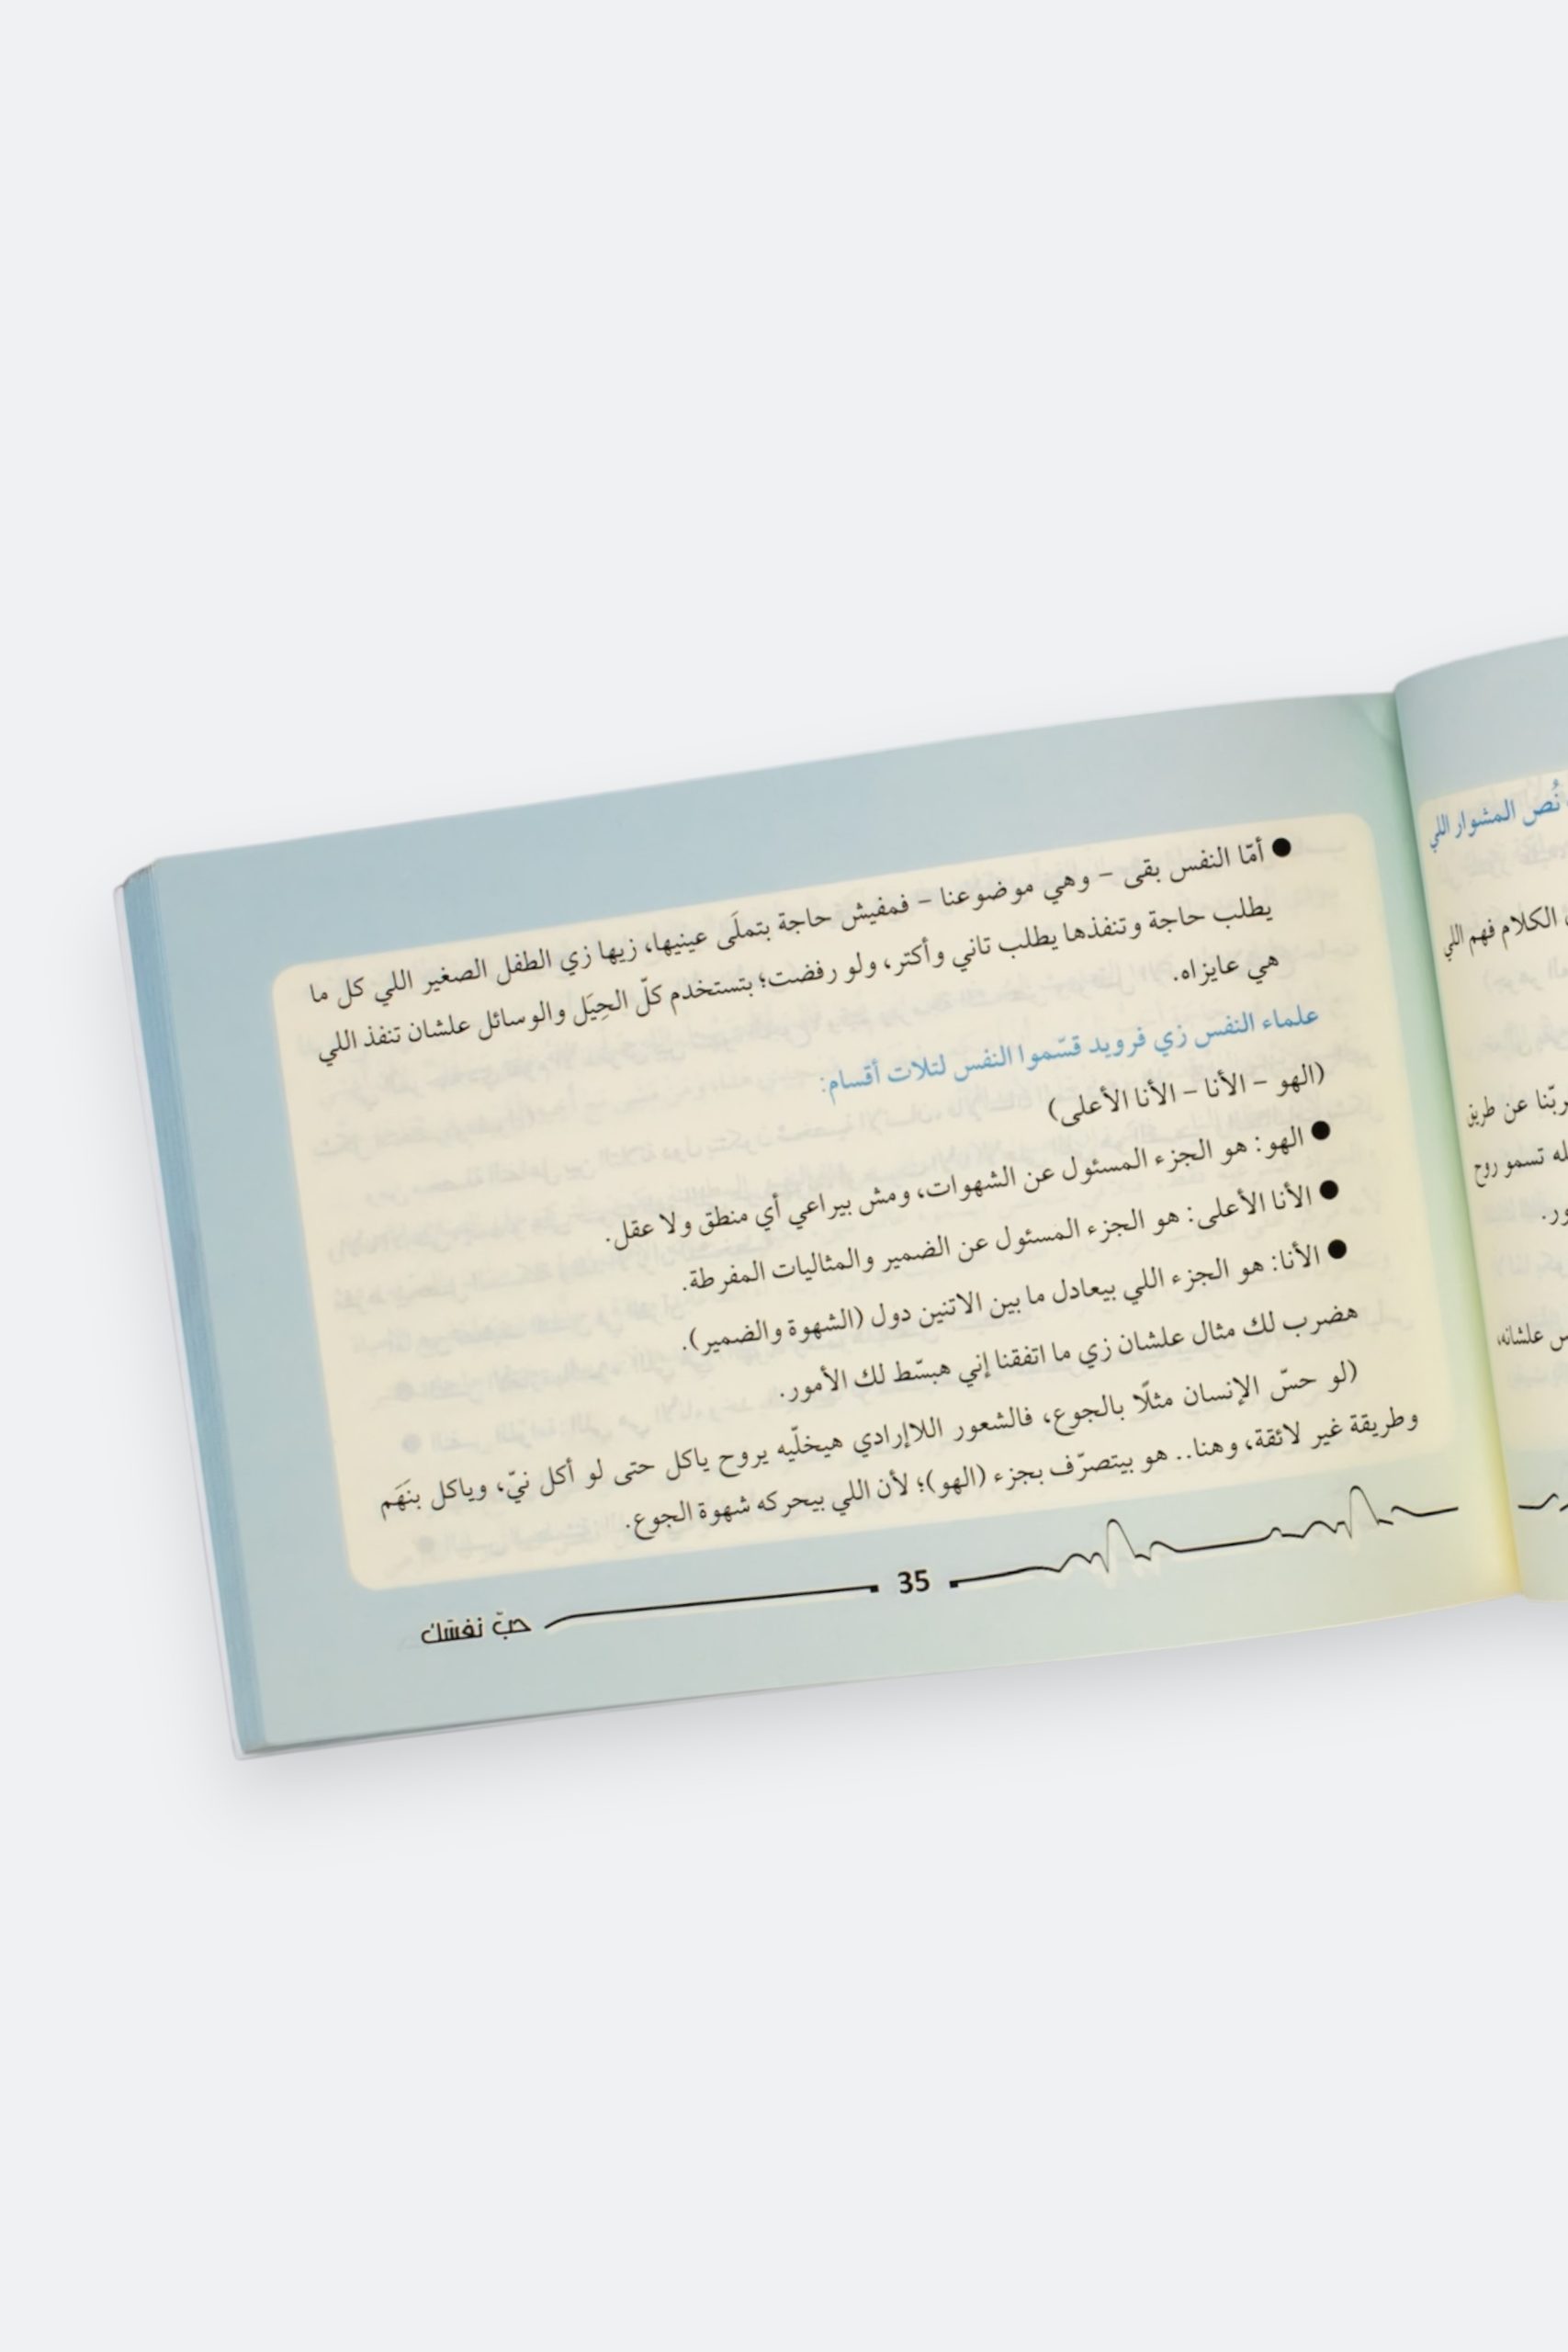 ● أمّا النفس بقى – وهي موضوعنا – فمفيش حاجة بتملَى عينيها، زيها زي الطفل الصغير اللي كل ما
يطلب حاجة وتنفذها يطلب تاني وأكتر، ولو رفضت؛ بتستخدم كلّ الحِيَل والوسائل علشان تنفذ اللي
هي عايزاه.
علماء النفس زي فرويد قسّموا النفس لتلات أقسام:
(الهو – الأنا – الأنا الأعلى)
● الهو: هو الجزء المسئول عن الشهوات، ومش بيراعي أي منطق ولا عقل.
● الأنا الأعلى: هو الجزء المسئول عن الضمير والمثاليات المفرطة.
● الأنا: هو الجزء اللي بيعادل ما بين الاتنين دول (الشهوة والضمير).
هضرب لك مثال علشان زي ما اتفقنا إني هبسّط لك الأمور.
(لو حسّ الإنسان مثلًا بالجوع، فالشعور اللاإرادي هيخلّيه يروح ياكل حتى لو أكل نيّ، وياكل بنَهَم
وطريقة غير لائقة، وهنا.. هو بيتصرّف بجزء (الهو)؛ لأن اللي بيحركه شهوة الجوع.
35
حبّ نفسَك
نُص المشوار اللي
الكلام فهم اللي
ربّنا عن طريق
تسمو روح
علشانه،